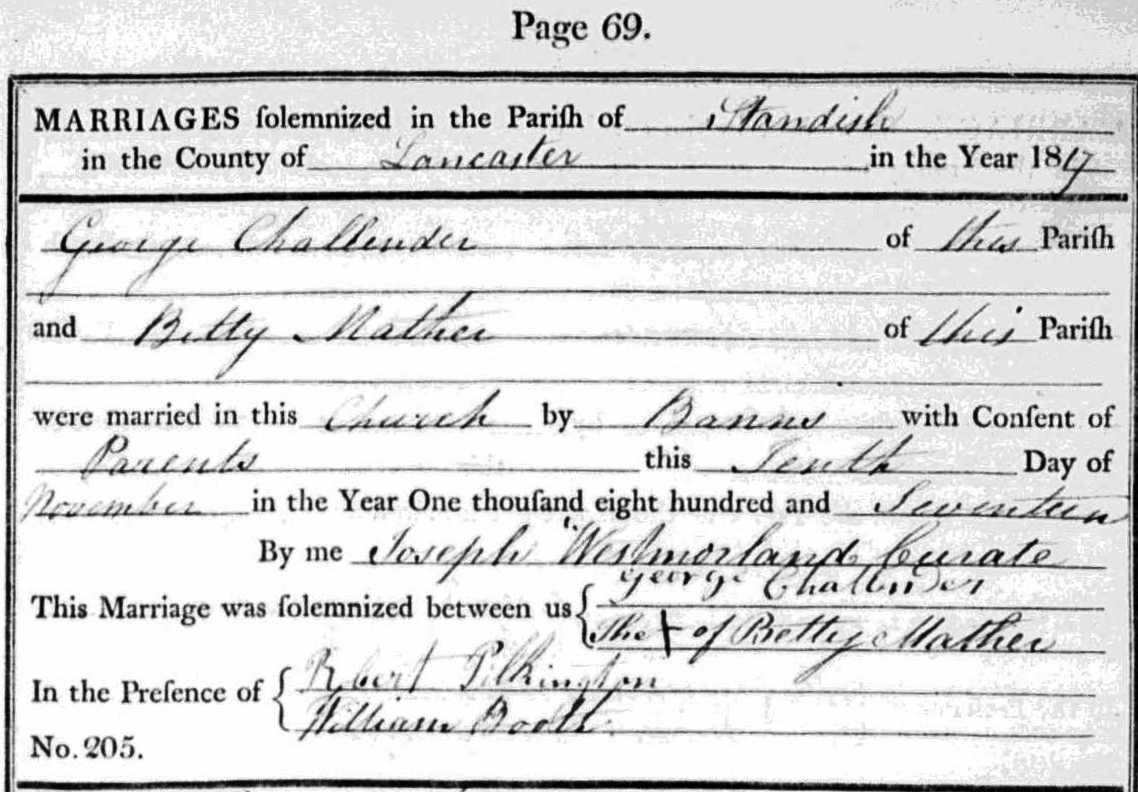 Page 69.
MARRIAGES ſolemnized in the Pariſh of Standish
in the County of Lancaster in the Year 1817
George Challender of this Pariſh
and Betty Mather of this Pariſh
were married in this Church by Banns with Conſent of
Parents this Tenth Day of
November in the Year One thouſand eight hundred and Seventeen
By me Joseph Westmorland Curate
This Marriage was ſolemnized between us { George Challender
The X of Betty Mather
In the Preſence of { Robert Pilkington
William Booth
No. 205.